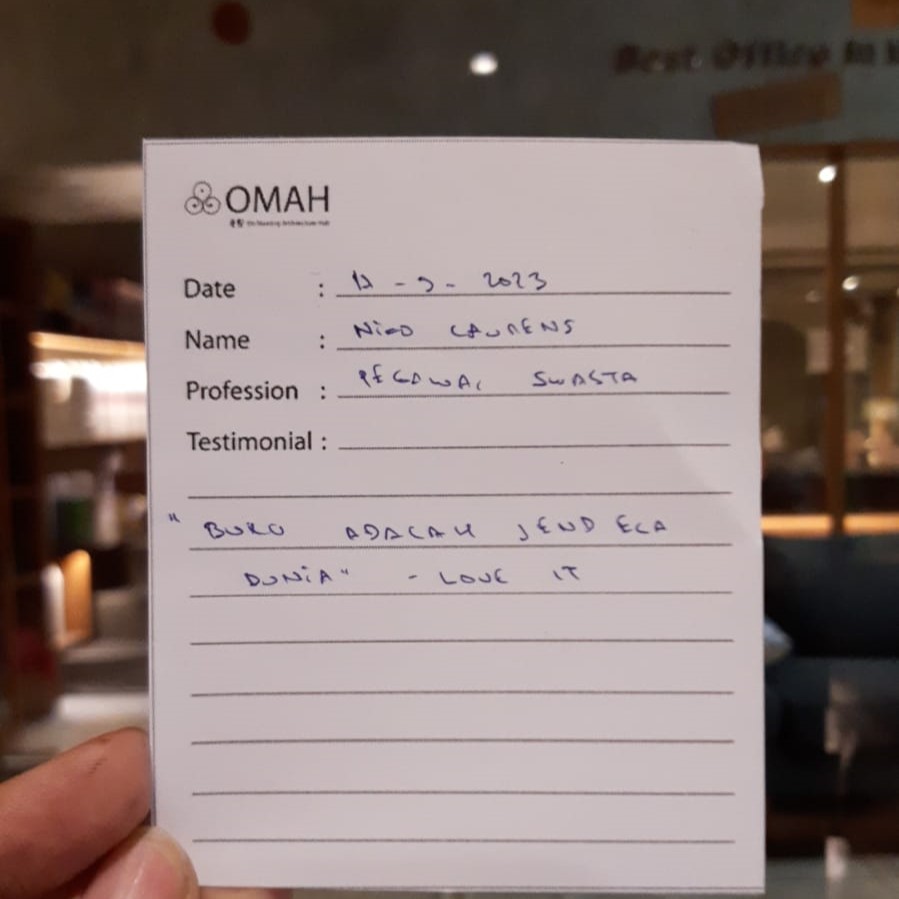 Best Office In
OMAH
Date : 12 - 9 - 2023
Name : NICO LAURENS
Profession : PEGAWAI SWASTA
Testimonial :
" BUKU ADALAH JENDELA
DUNIA" - LOVE IT